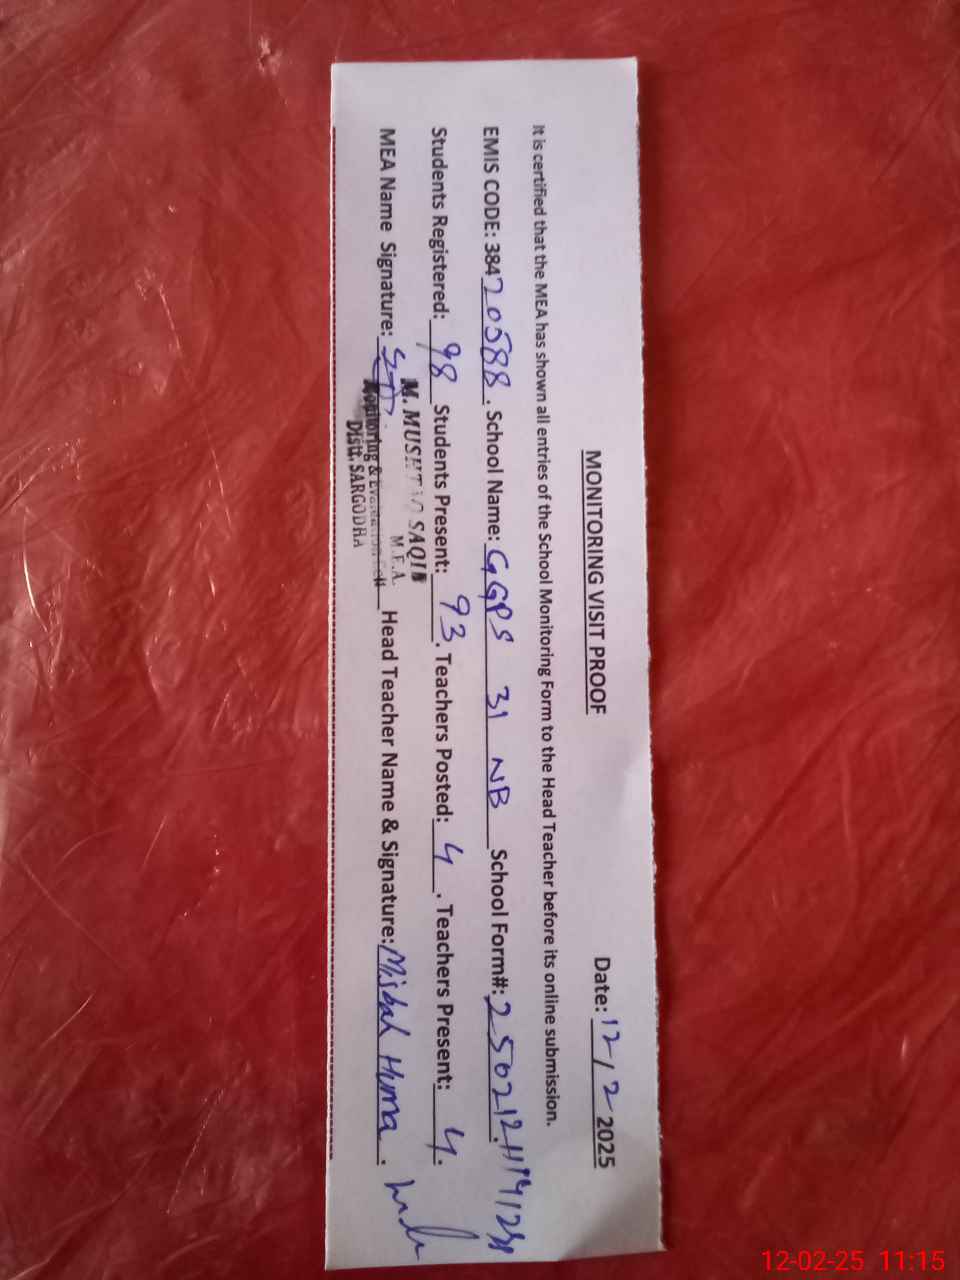 MONITORING VISIT PROOF Date: 12/2 2025
It is certified that the MEA has shown all entries of the School Monitoring Form to the Head Teacher before its online submission.
EMIS CODE: 38420588. School Name: GGPS 31 NB School Form#:
Students Registered: 98 Students Present: 93. Teachers Posted: 4. Teachers Present: 4.
MEA Name Signature: Head Teacher Name & Signature: Misbah Huma.
M. MUSHTAQ SAQIB
M.E.A.
Monitoring & Evaluation Cell
Distt. SARGODHA
12-02-25 11:15